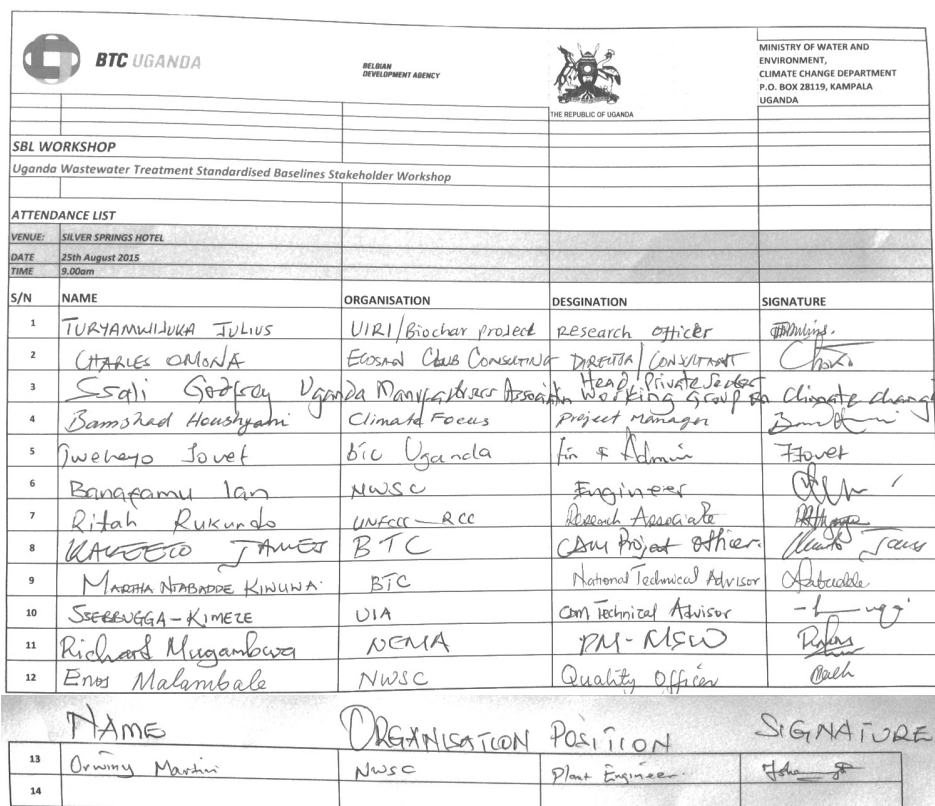 BTC UGANDA
BELGIAN
DEVELOPMENT AGENCY
THE REPUBLIC OF UGANDA
MINISTRY OF WATER AND
ENVIRONMENT,
CLIMATE CHANGE DEPARTMENT
P.O. BOX 28119, KAMPALA
UGANDA
SBL WORKSHOP
Uganda Wastewater Treatment Standardised Baselines Stakeholder Workshop
ATTENDANCE LIST
VENUE: SILVER SPRINGS HOTEL
DATE 25th August 2015
TIME 9.00am
S/N NAME ORGANISATION DESGINATION SIGNATURE
1 TURYAMWIJUKA JULIUS UIRI/Biochar project Research officer
2 CHARLES OMONA ECOSAN CLUB CONSULTING DIRECTOR/CONSULTANT
3 Ssali Godfrey Uganda Manufacturers Association Head/Private Sector Working Group on Climate change
4 Bamshad Houshyani Climate Focus Project Manager
5 Tweheyo Jovet BTC Uganda Fin & Admin Jovet
6 Ian NWSC Engineer
7 Ritah Rukundo UNFCCC-RCC Research Associate
8 JAMES BTC CDM Project Officer. James
9 MARTHA NTABADDE KINUWA. BTC National Technical Advisor
10 SSEBBUGGA-KIMEZE UIA CDM Technical Advisor
11 Richard Mugambwa NEMA PM-MSW
12 Enos Malambale NWSC Quality Officer
NAME ORGANISATION POSITION SIGNATURE
13 Orwiny Martin NWSC Plant Engineer.
14